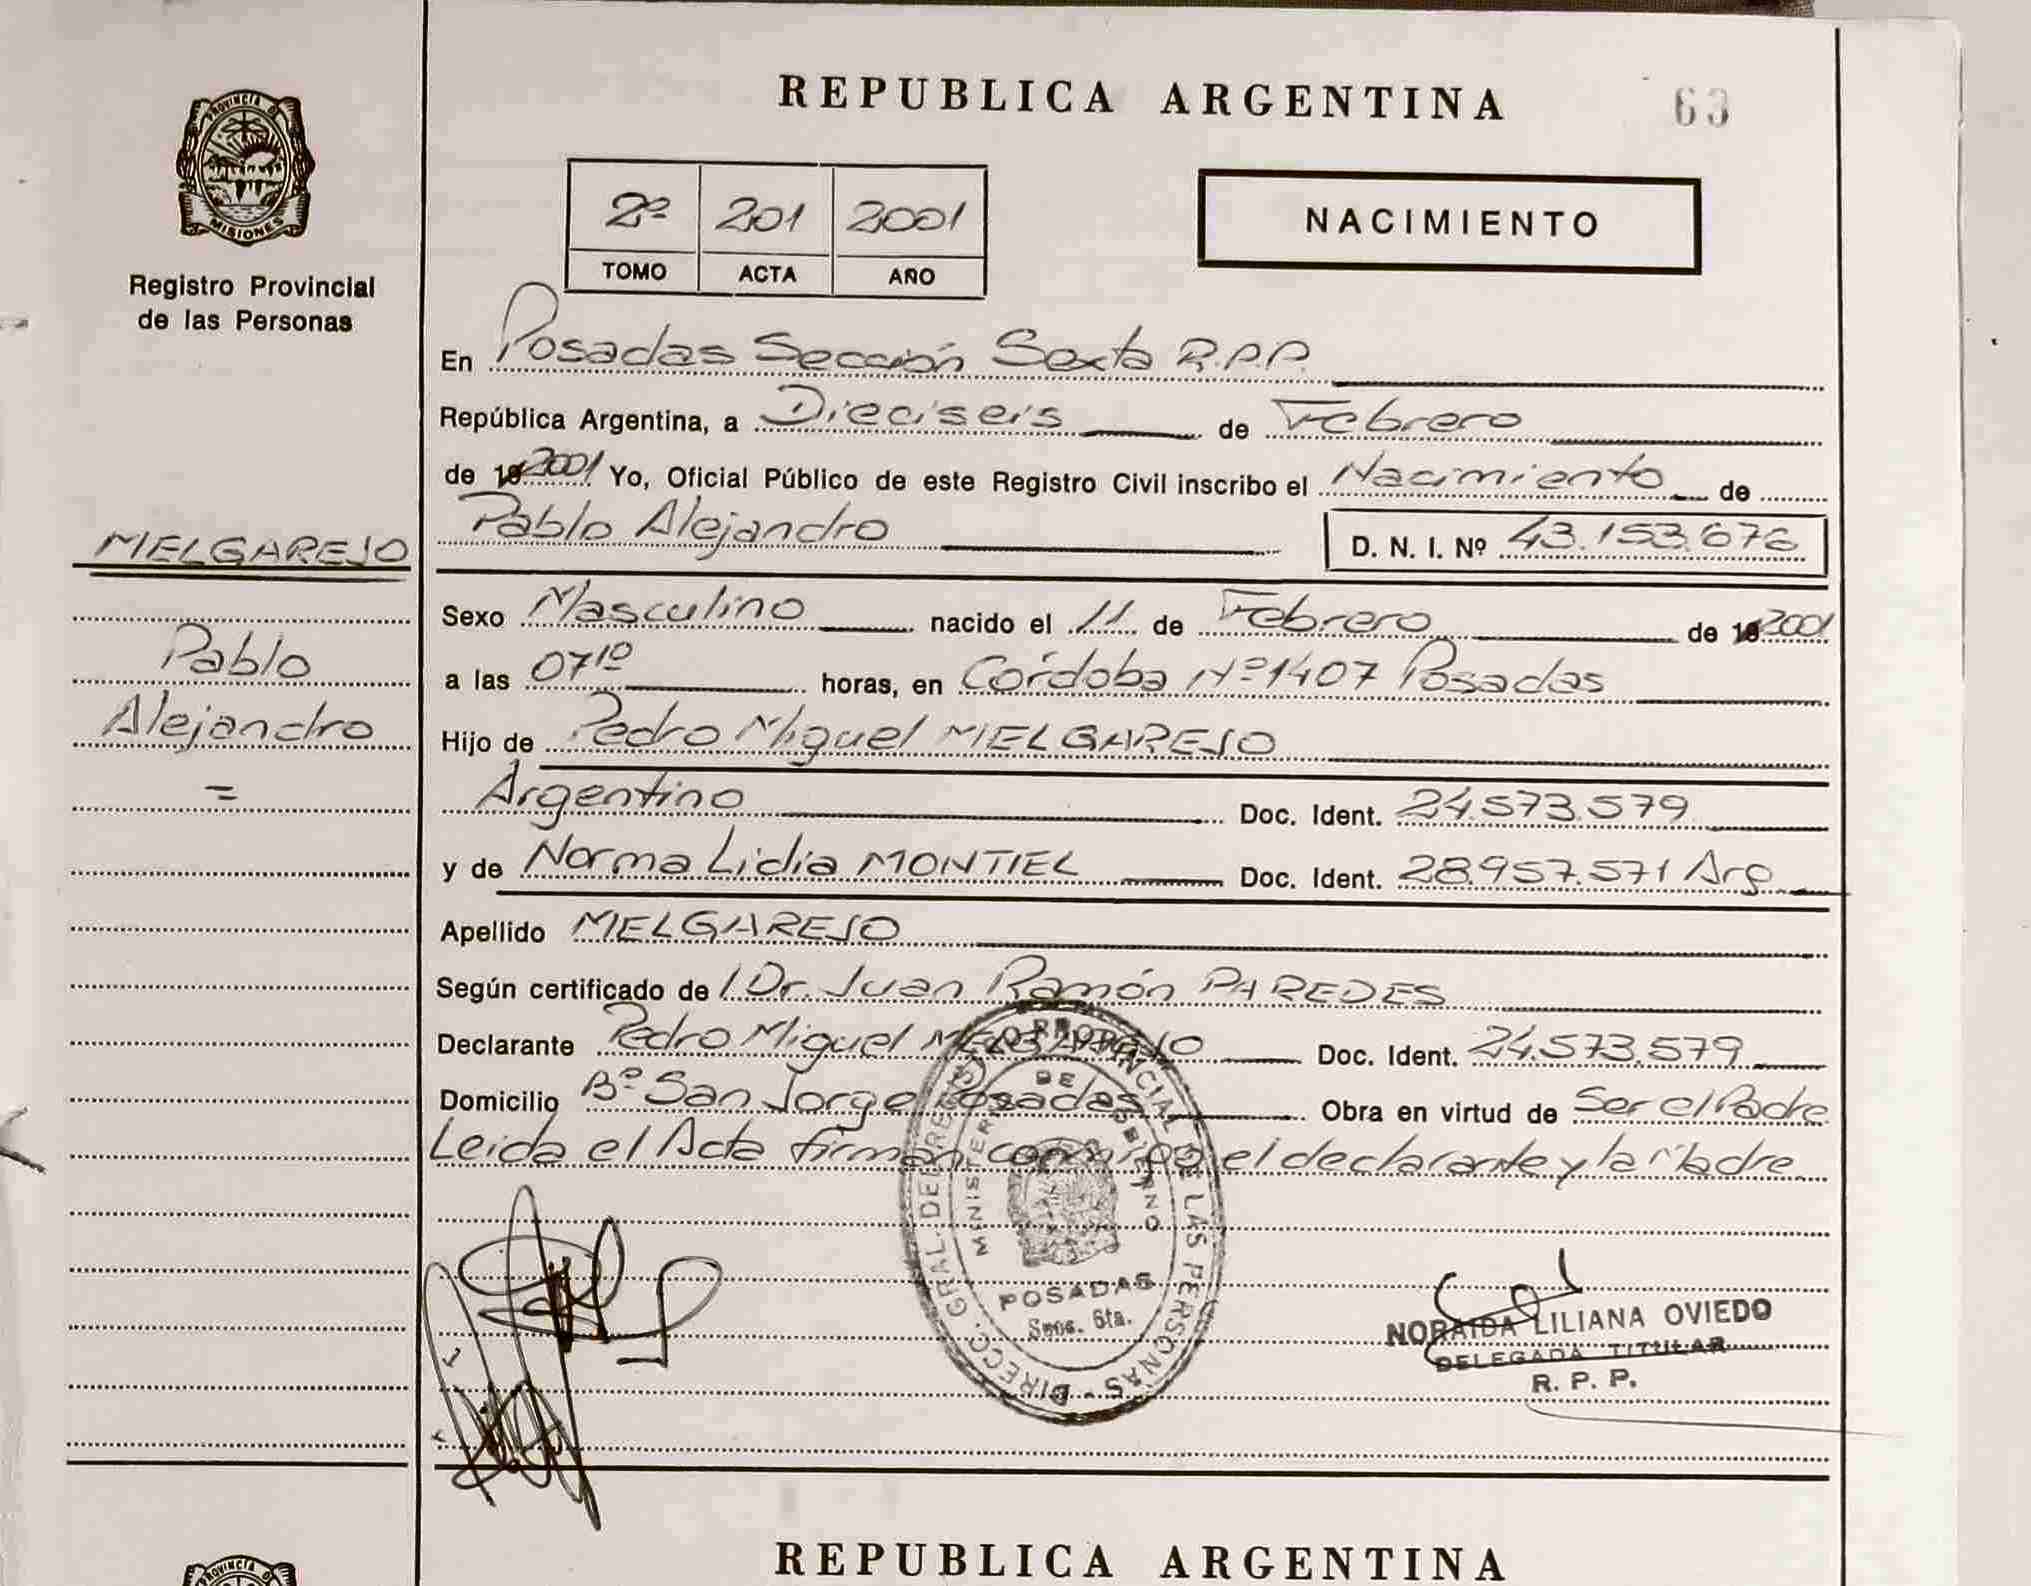 PROVINCIA DE
MISIONES
Registro Provincial
de las Personas
MELGAREJO
Pablo
Alejandro
=
REPUBLICA ARGENTINA
63
2º 201 2001
TOMO ACTA AÑO
NACIMIENTO
En Posadas Sección Sexta R.P.P.
República Argentina, a Dieciseis de Febrero
de 192001 Yo, Oficial Público de este Registro Civil inscribo el Nacimiento de
Pablo Alejandro D. N. I. Nº 43.153.676
Sexo Masculino nacido el 11 de Febrero de 192001
a las 07¹⁰ horas, en Córdoba Nº 1407 Posadas
Hijo de Pedro Miguel MELGAREJO
Argentino Doc. Ident. 24.573.579
y de Norma Lidia MONTIEL Doc. Ident. 28.957.571 Arg
Apellido MELGAREJO
Según certificado de / Dr. Juan Ramón PAREDES
Declarante Pedro Miguel MELGAREJO Doc. Ident. 24.573.579
Domicilio Bº San Jorge Posadas Obra en virtud de Ser el Padre
Leida el Acta firman conmigo el declarante y la Madre
DIRECC. GRAL. DEL REGISTRO PROVINCIAL DE LAS PERSONAS -
MINISTERIO DE GOBIERNO
POSADAS
Secc. 6ta.
NORAIDA LILIANA OVIEDO
DELEGADA TITULAR
R. P. P.
PROVINCIA DE
REPUBLICA ARGENTINA